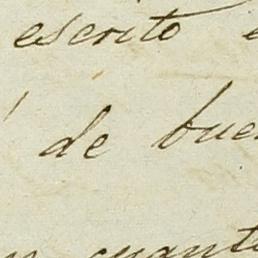 escrito
de bue
cuant